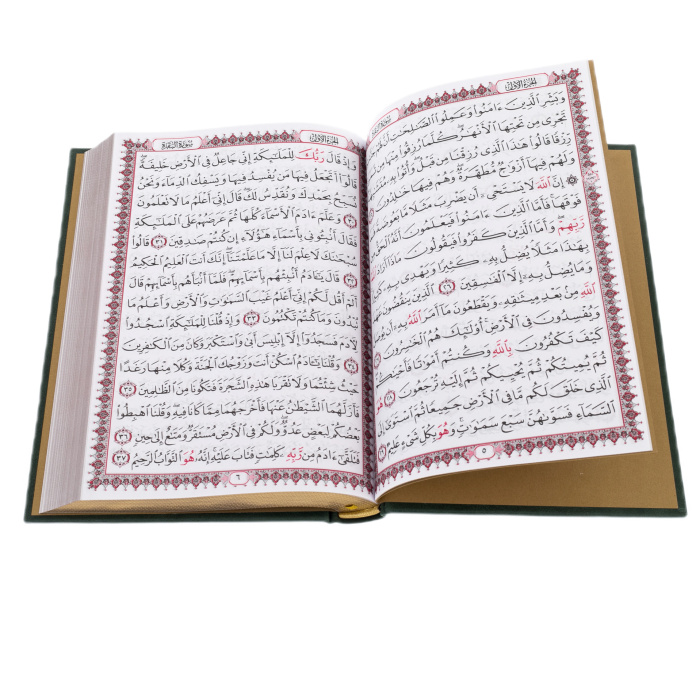 الجزء الأول
وَبَشِّرِ ٱلَّذِينَ ءَامَنُوا۟ وَعَمِلُوا۟ ٱلصَّٰلِحَٰتِ أَنَّ
تَجْرِى مِن تَحْتِهَا ٱلْأَنْهَٰرُ كُلَّمَا رُزِقُوا۟ مِنْهَا مِن
رِّزْقًا قَالُوا۟ هَٰذَا ٱلَّذِى رُزِقْنَا مِن قَبْلُ وَأُتُوا۟
وَلَهُمْ فِيهَآ أَزْوَٰجٌ مُّطَهَّرَةٌ وَهُمْ فِيهَا خَٰلِدُونَ
۞ إِنَّ ٱللَّهَ لَا يَسْتَحْىِۦٓ أَن يَضْرِبَ مَثَلًا مَّا بَعُوضَةً
فَوْقَهَا فَأَمَّا ٱلَّذِينَ ءَامَنُوا۟ فَيَعْلَمُونَ أَنَّهُ ٱلْحَقُّ
رَّبِّهِمْ وَأَمَّا ٱلَّذِينَ كَفَرُوا۟ فَيَقُولُونَ مَاذَآ أَرَادَ
بِهَٰذَا مَثَلًا يُضِلُّ بِهِۦ كَثِيرًا وَيَهْدِى بِهِۦ
وَمَا يُضِلُّ بِهِۦٓ إِلَّا ٱلْفَٰسِقِينَ ٢٦ ٱلَّذِينَ يَنقُضُونَ
ٱللَّهِ مِنۢ بَعْدِ مِيثَٰقِهِۦ وَيَقْطَعُونَ مَآ أَمَرَ ٱللَّهُ بِهِۦٓ أَن
وَيُفْسِدُونَ فِى ٱلْأَرْضِ أُو۟لَٰٓئِكَ هُمُ ٱلْخَٰسِرُونَ
كَيْفَ تَكْفُرُونَ بِٱللَّهِ وَكُنتُمْ أَمْوَٰتًا فَأَحْيَٰكُمْ
ثُمَّ يُمِيتُكُمْ ثُمَّ يُحْيِيكُمْ ثُمَّ إِلَيْهِ تُرْجَعُونَ ٢٨ هُوَ
ٱلَّذِى خَلَقَ لَكُم مَّا فِى ٱلْأَرْضِ جَمِيعًا ثُمَّ ٱسْتَوَىٰٓ إِلَى
ٱلسَّمَآءِ فَسَوَّىٰهُنَّ سَبْعَ سَمَٰوَٰتٍ وَهُوَ بِكُلِّ شَىْءٍ عَلِيمٌ
٥
الجزء الأول
سورة البقرة
وَإِذْ قَالَ رَبُّكَ لِلْمَلَٰٓئِكَةِ إِنِّى جَاعِلٌ فِى ٱلْأَرْضِ خَلِيفَةً
قَالُوٓا۟ أَتَجْعَلُ فِيهَا مَن يُفْسِدُ فِيهَا وَيَسْفِكُ ٱلدِّمَآءَ وَنَحْنُ
نُسَبِّحُ بِحَمْدِكَ وَنُقَدِّسُ لَكَ قَالَ إِنِّىٓ أَعْلَمُ مَا لَا تَعْلَمُونَ
٣٠ وَعَلَّمَ ءَادَمَ ٱلْأَسْمَآءَ كُلَّهَا ثُمَّ عَرَضَهُمْ عَلَى ٱلْمَلَٰٓئِكَةِ
فَقَالَ أَنۢبِـُٔونِى بِأَسْمَآءِ هَٰٓؤُلَآءِ إِن كُنتُمْ صَٰدِقِينَ ٣١ قَالُوا۟
سُبْحَٰنَكَ لَا عِلْمَ لَنَآ إِلَّا مَا عَلَّمْتَنَآ إِنَّكَ أَنتَ ٱلْعَلِيمُ ٱلْحَكِيمُ
٣٢ قَالَ يَٰٓـَٔادَمُ أَنۢبِئْهُم بِأَسْمَآئِهِمْ فَلَمَّآ أَنۢبَأَهُم بِأَسْمَآئِهِمْ قَالَ
أَلَمْ أَقُل لَّكُمْ إِنِّىٓ أَعْلَمُ غَيْبَ ٱلسَّمَٰوَٰتِ وَٱلْأَرْضِ وَأَعْلَمُ مَا
تُبْدُونَ وَمَا كُنتُمْ تَكْتُمُونَ ٣٣ وَإِذْ قُلْنَا لِلْمَلَٰٓئِكَةِ ٱسْجُدُوا۟
لِـَٔادَمَ فَسَجَدُوٓا۟ إِلَّآ إِبْلِيسَ أَبَىٰ وَٱسْتَكْبَرَ وَكَانَ مِنَ ٱلْكَٰفِرِينَ
٣٤ وَقُلْنَا يَٰٓـَٔادَمُ ٱسْكُنْ أَنتَ وَزَوْجُكَ ٱلْجَنَّةَ وَكُلَا مِنْهَا رَغَدًا
حَيْثُ شِئْتُمَا وَلَا تَقْرَبَا هَٰذِهِ ٱلشَّجَرَةَ فَتَكُونَا مِنَ ٱلظَّٰلِمِينَ ٣٥
فَأَزَلَّهُمَا ٱلشَّيْطَٰنُ عَنْهَا فَأَخْرَجَهُمَا مِمَّا كَانَا فِيهِ وَقُلْنَا ٱهْبِطُوا۟
بَعْضُكُمْ لِبَعْضٍ عَدُوٌّ وَلَكُمْ فِى ٱلْأَرْضِ مُسْتَقَرٌّ وَمَتَٰعٌ إِلَىٰ حِينٍ ٣٦
فَتَلَقَّىٰٓ ءَادَمُ مِن رَّبِّهِۦ كَلِمَٰتٍ فَتَابَ عَلَيْهِ إِنَّهُۥ هُوَ ٱلتَّوَّابُ ٱلرَّحِيمُ ٣٧
٦